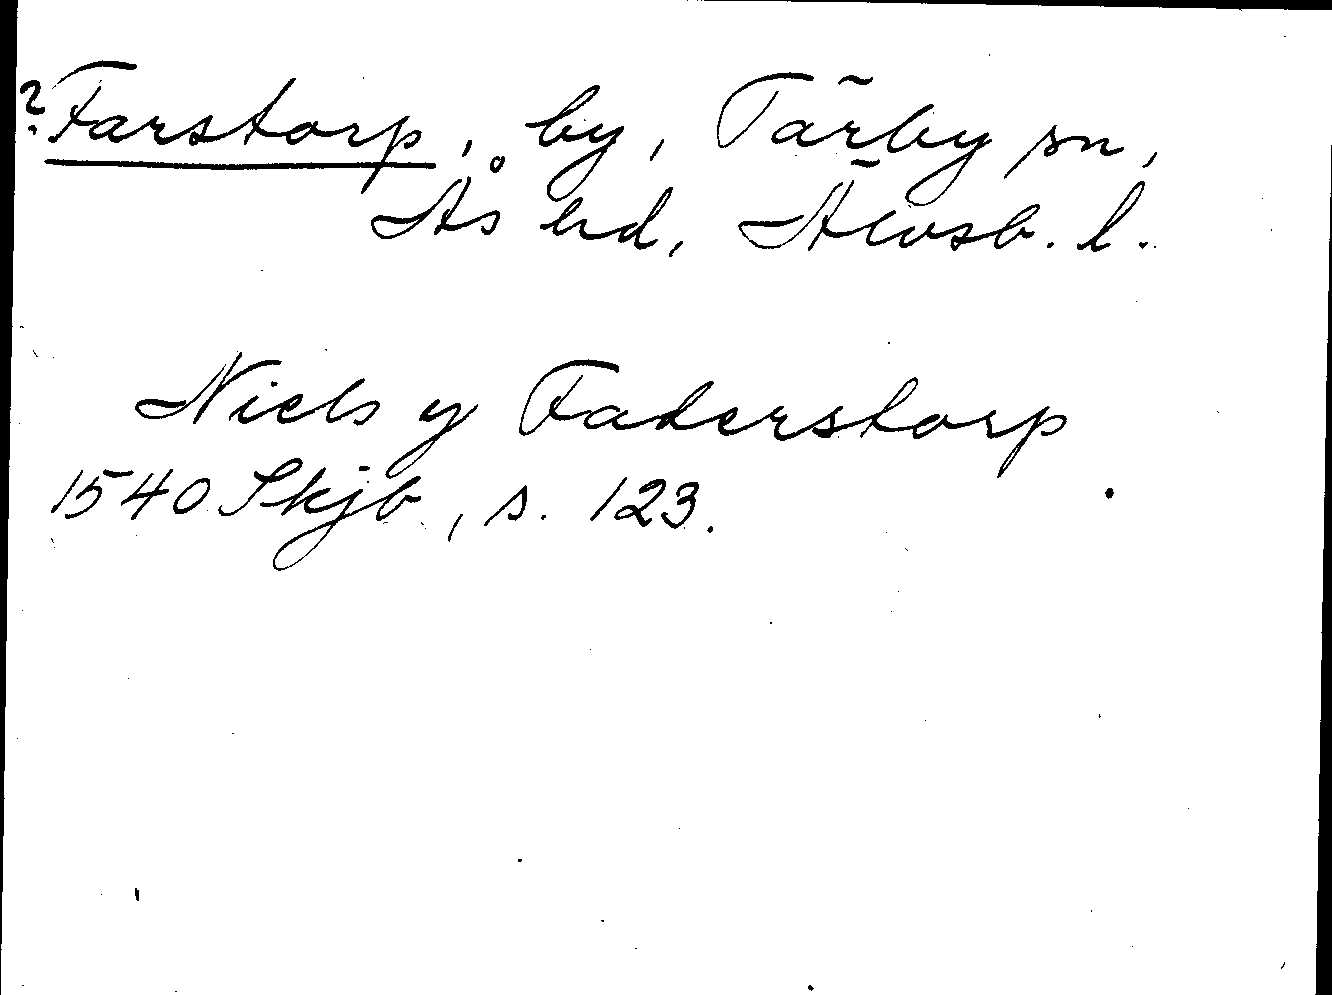 ? Farstorp, by, Tärby sn,
Ås hd, Älvsb. l.
Niels y Faderstorp
1540 Skjb, s. 123.